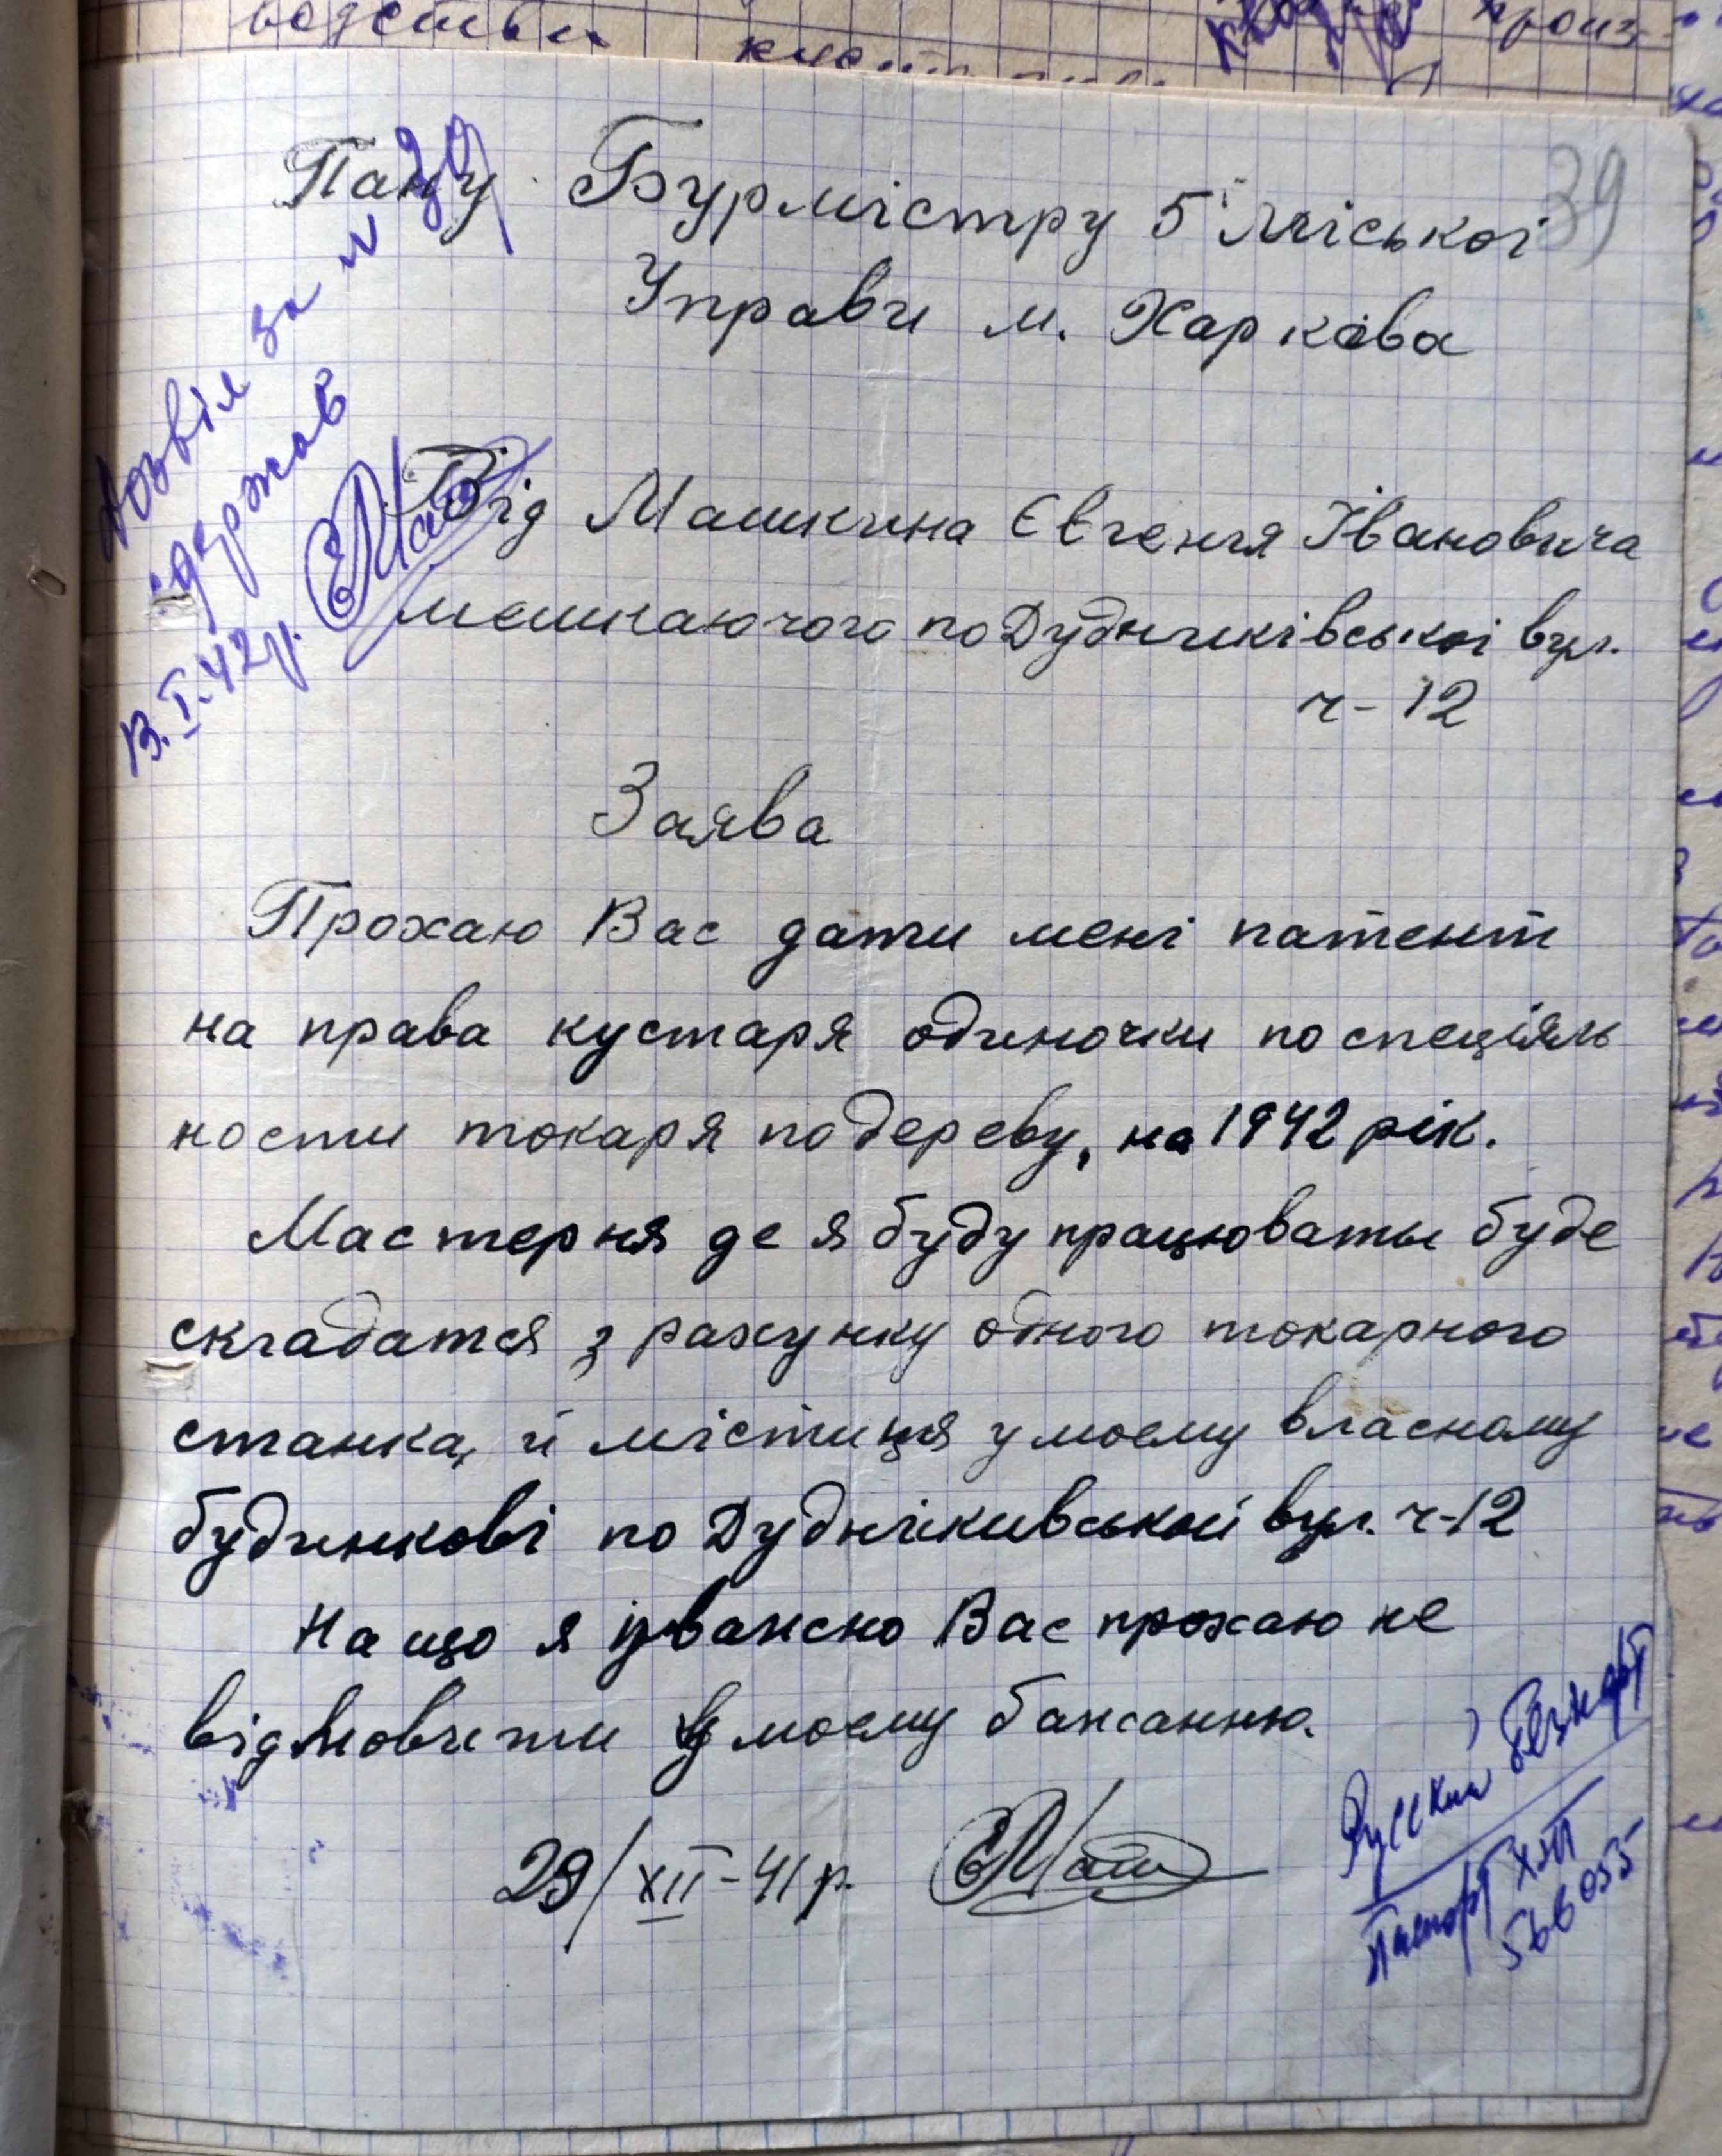 водства
произ-
39
Пану Бурмістру 5ї Міської
Управи м. Харкова
Дозвіл за № 39
одержав
13.I.42р. ЕМаш
Від Машкина Євгенія Івановича
мешкаючого по Дудниківської вул.
ч-12
Заява
Прохаю Вас дати мені патент
на права кустаря одиночки по спеціяль
ности токаря по дереву, на 1942 рік.
Мастерня де я буду працювати буде
складатся з рахунку одного токарного
станка, й містиця у моєму власному
будинкові по Дуднікивської вул. ч-12
На що я уважно Вас прохаю не
відмовити у моему бажанню.
29/XII-41р. ЕМаш
Русский безпарт
Паспорт ХЛП
566055